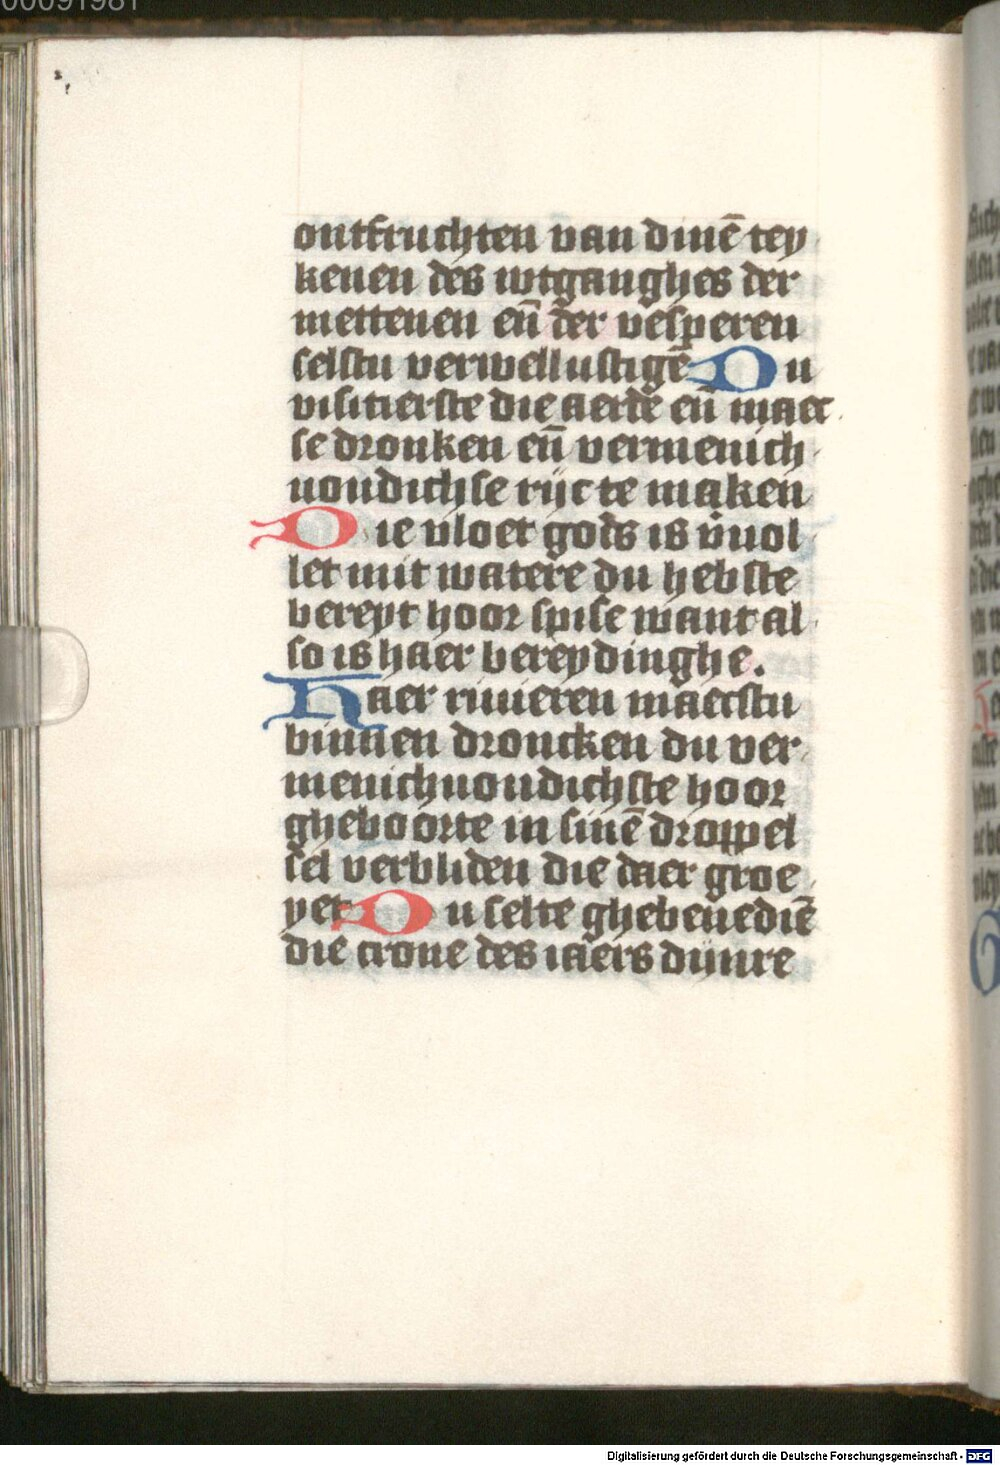 00091981
ontfruchten van dinē tey
kenen des wtganghes der
mettenen en̄ der vesperen
selstu verwellustigē Du
visitierste die aerde en̄ maec
se dronken en̄ vermenich
uoudichse rijc te maken
Die vloet gods is v̄uol
let mit watere du hebste
bereyt hoor spise want al
so is haer bereydinghe.
Haer riuieren maecstu
binnen droncken du ver
menichuoudichste hoor
gheboorte in sinē droppel
sel verbliden die daer groe
yet Du selte ghebenediē
die crone des iaers dijnre
Digitalisierung gefördert durch die Deutsche Forschungsgemeinschaft - DFG